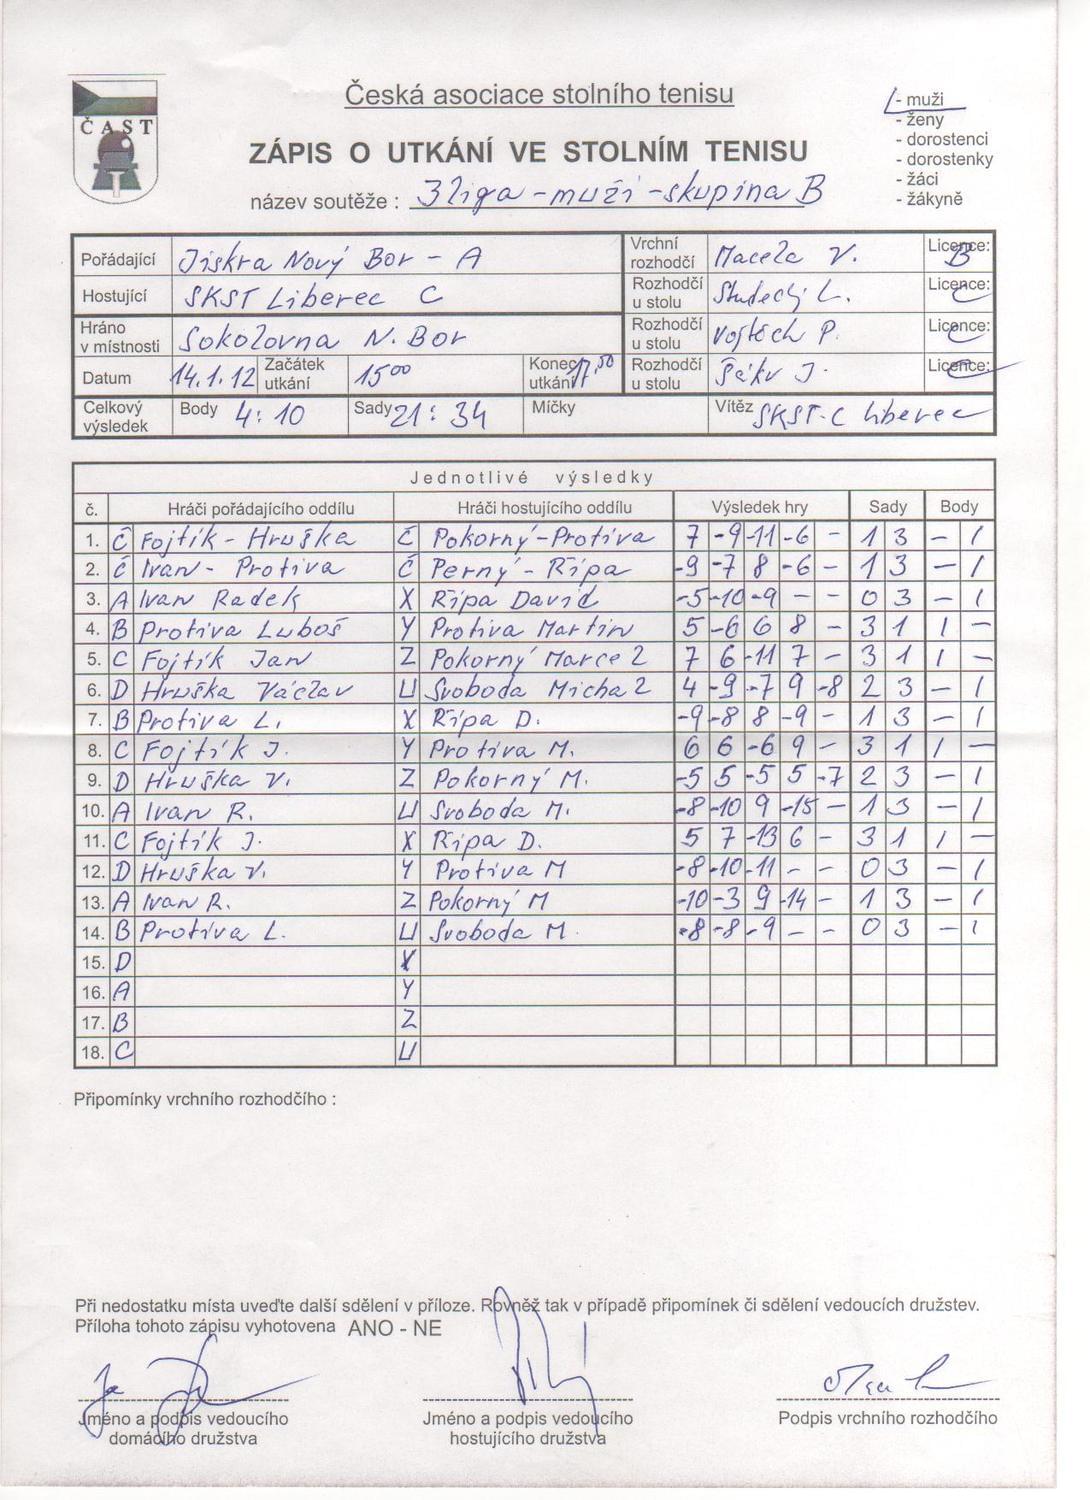 ČAST
Česká asociace stolního tenisu
ZÁPIS O UTKÁNÍ VE STOLNÍM TENISU
název soutěže : 3 liga - muži - skupina B
- muži
- ženy
- dorostenci
- dorostenky
- žáci
- žákyně
Pořádající Jiskra Nový Bor - A Vrchní rozhodčí Macela V. Licence: B
Hostující SKST Liberec C Rozhodčí u stolu L. Licence: C
Hráno v místnosti Sokolovna N. Bor Rozhodčí u stolu Vojtěch P. Licence: C
Datum 14.1.12 Začátek utkání 15 00 Konec utkání 17,50 Rozhodčí u stolu J. Licence: C
Celkový výsledek Body 4:10 Sady 21:34 Míčky Vítěz SKST-C Liberec
Jednotlivé výsledky
č. Hráči pořádajícího oddílu Hráči hostujícího oddílu Výsledek hry Sady Body
1. Č Fojtík - Hruška Č Pokorný - Protiva 7 -9 -11 -6 - 1 3 - 1
2. Č Ivan - Protiva Č Perný - Řípa -9 -7 8 -6 - 1 3 - 1
3. A Ivan Radek X Řípa David -5 -10 -9 - - 0 3 - 1
4. B Protiva Luboš Y Protiva Martin 5 -6 6 8 - 3 1 1 -
5. C Fojtík Jan Z Pokorný Marcel 7 6 -11 7 - 3 1 1 -
6. D Hruška Václav U Svoboda Michal 4 -9 -7 9 -8 2 3 - 1
7. B Protiva L. X Řípa D. -9 -8 8 -9 - 1 3 - 1
8. C Fojtík J. Y Protiva M. 6 6 -6 9 - 3 1 1 -
9. D Hruška V. Z Pokorný M. -5 5 -5 5 -7 2 3 - 1
10. A Ivan R. U Svoboda M. -8 -10 9 -15 - 1 3 - 1
11. C Fojtík J. X Řípa D. 5 7 -13 6 - 3 1 1 -
12. D Hruška V. Y Protiva M -8 -10 -11 - - 0 3 - 1
13. A Ivan R. Z Pokorný M -10 -3 9 -14 - 1 3 - 1
14. B Protiva L. U Svoboda M. -8 -8 -9 - - 0 3 - 1
15. D X
16. A Y
17. B Z
18. C U
Připomínky vrchního rozhodčího :
Při nedostatku místa uveďte další sdělení v příloze. Rovněž tak v případě připomínek či sdělení vedoucích družstev.
Příloha tohoto zápisu vyhotovena ANO - NE
Jméno a podpis vedoucího domácího družstva
Jméno a podpis vedoucího hostujícího družstva
Podpis vrchního rozhodčího